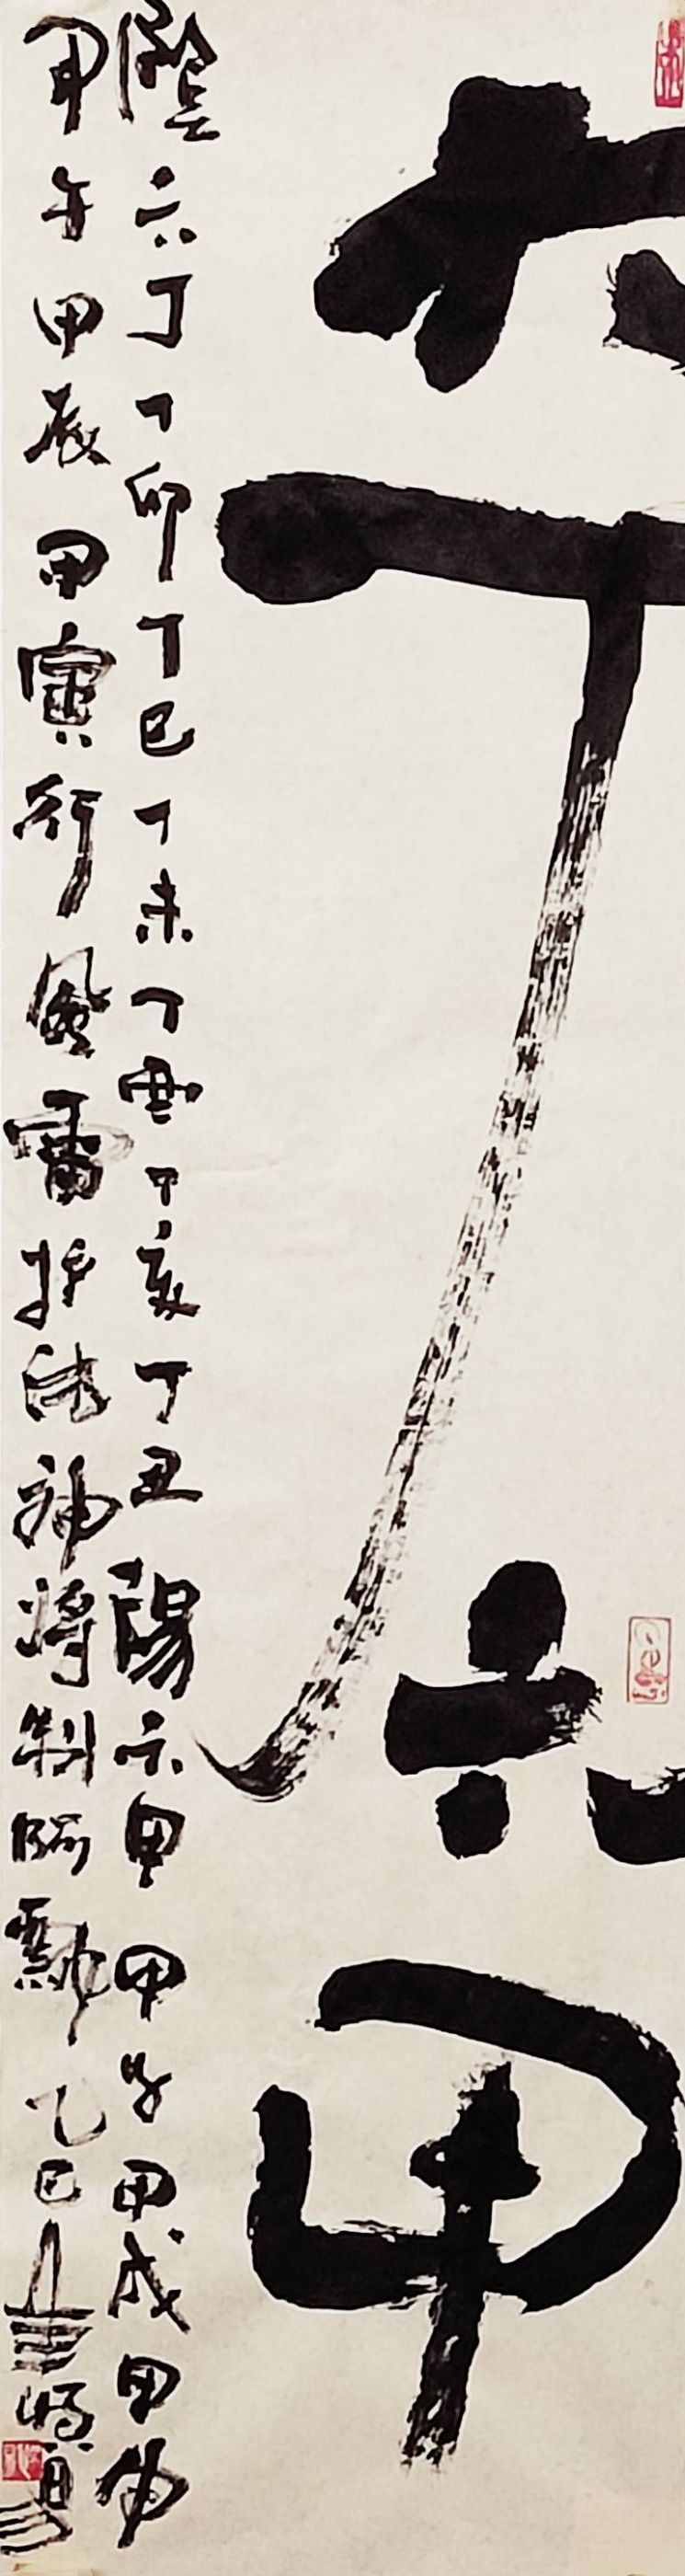 六丁六甲
陰六丁丁卯丁巳丁未丁酉丁亥丁丑陽六甲甲子甲戌甲申
甲午甲辰甲寅行風雷护法神將制乙巳